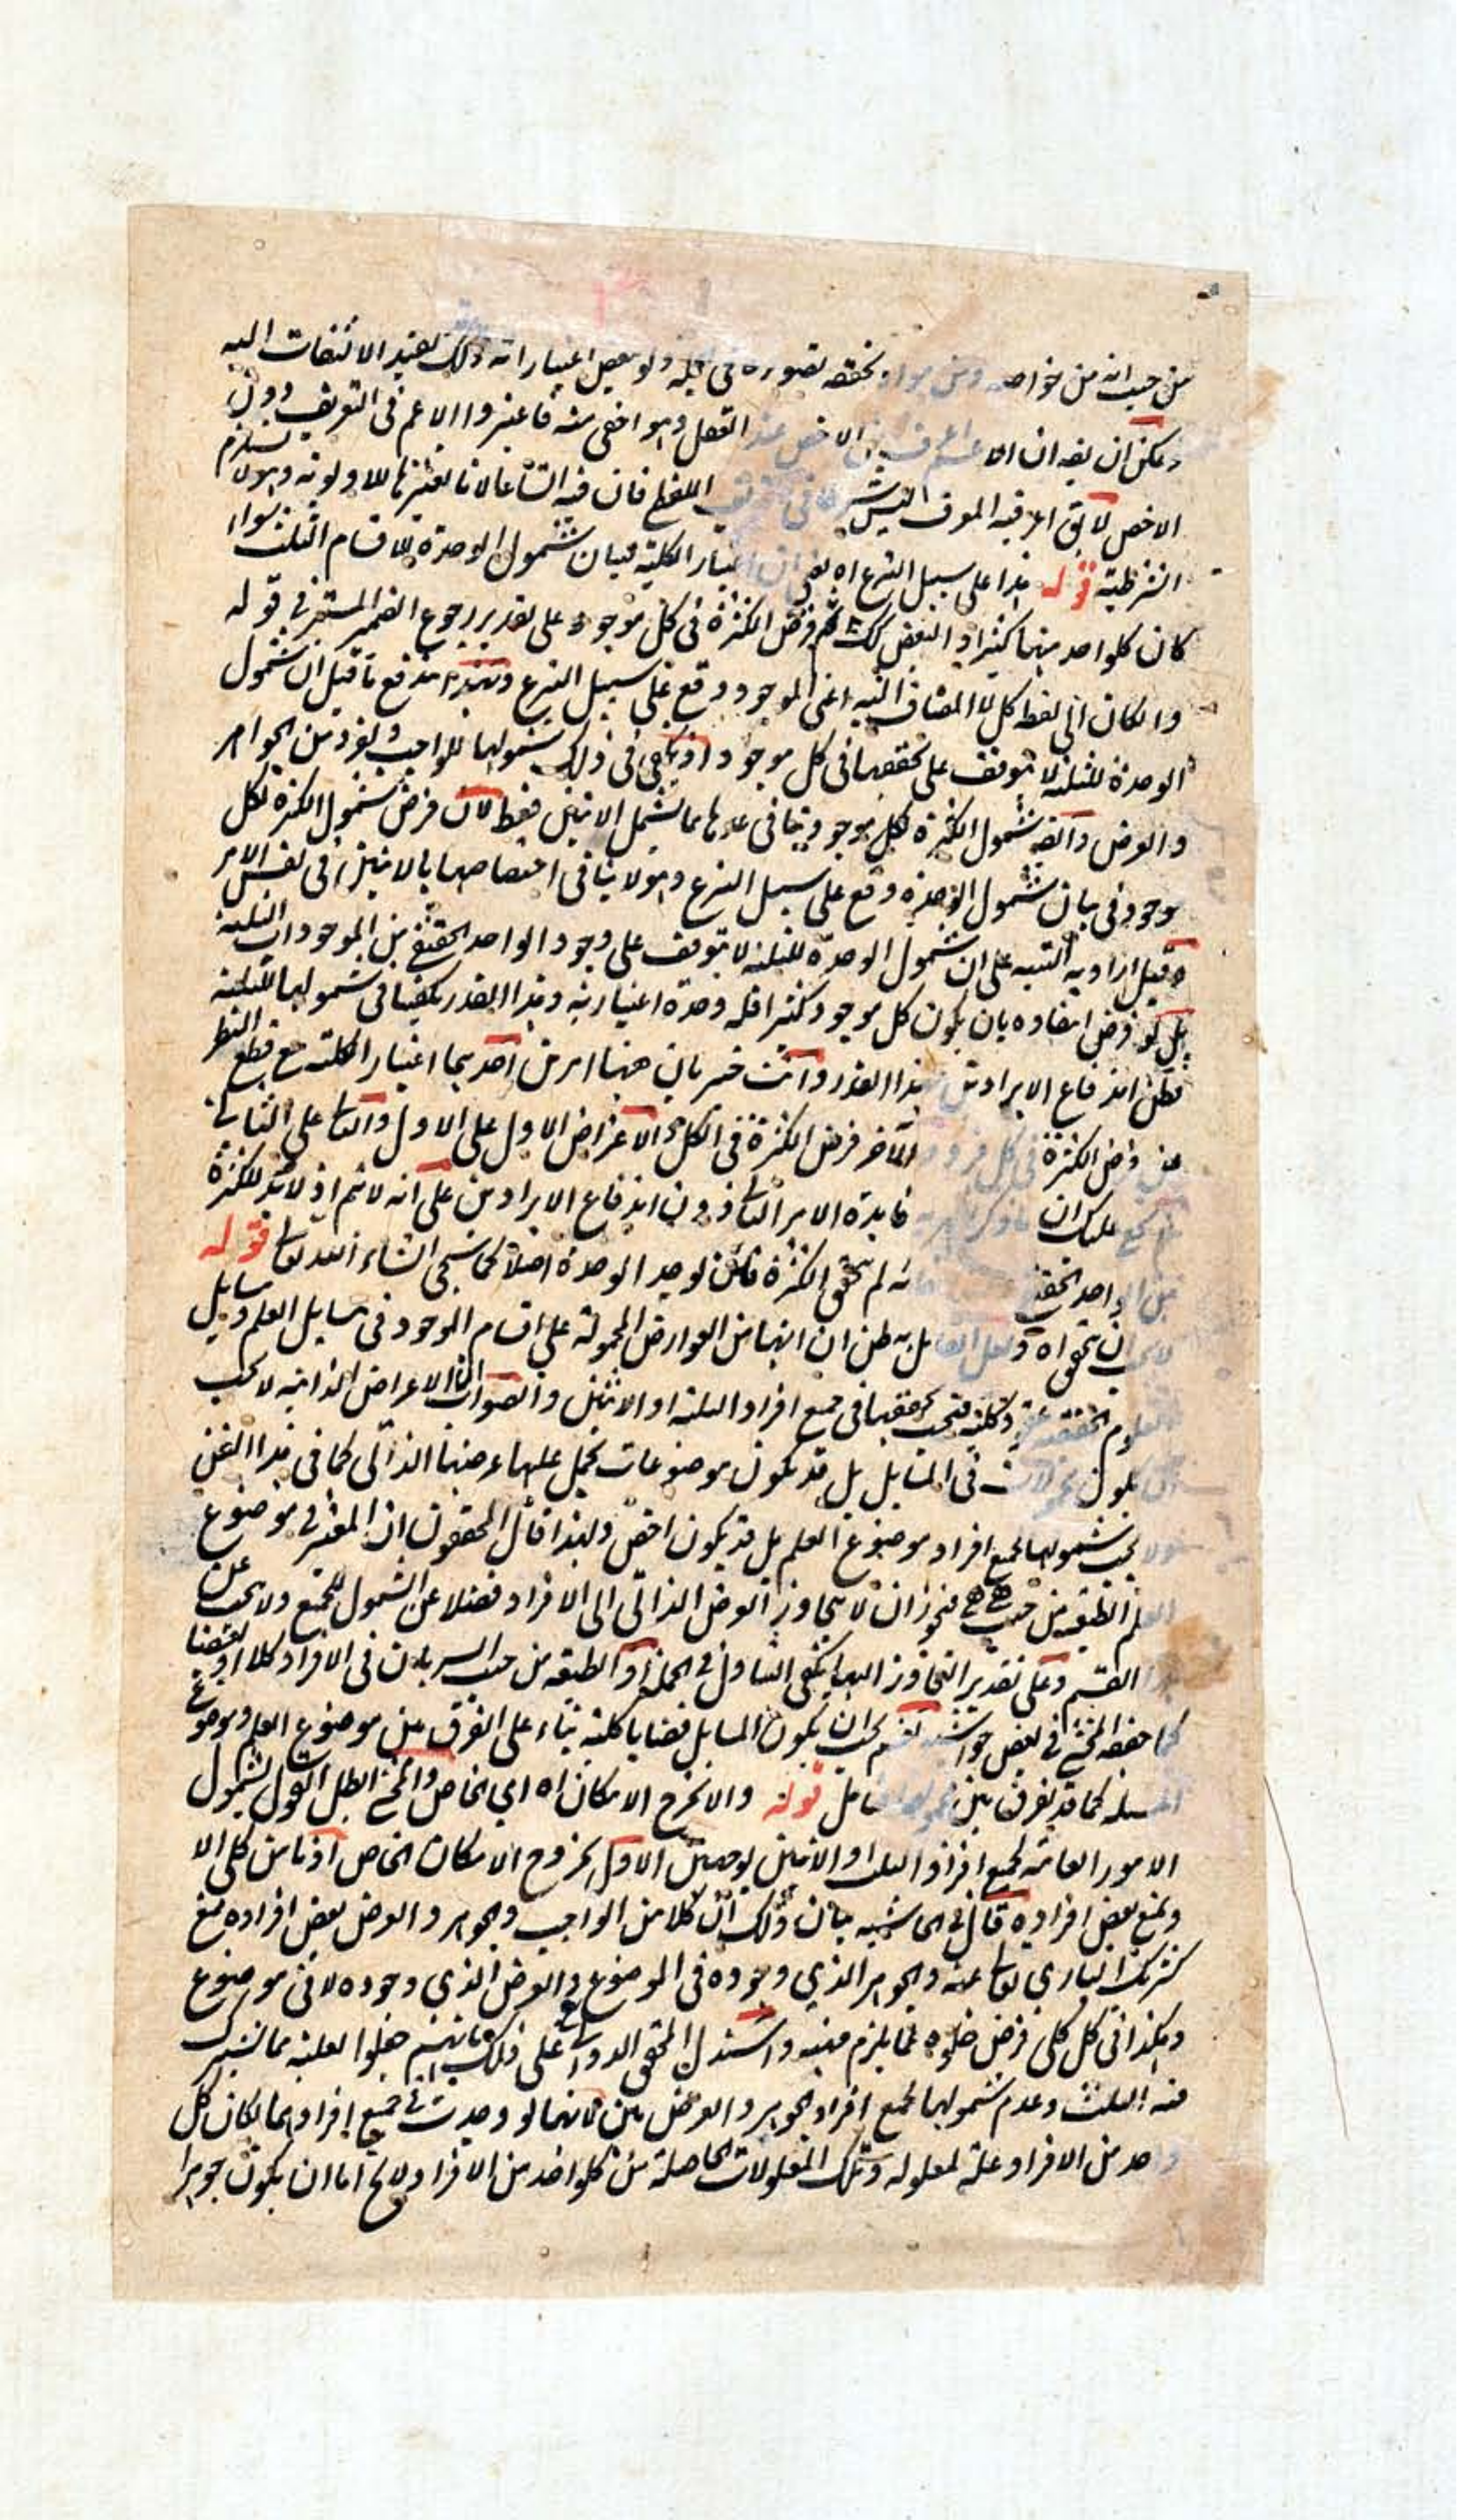 من حيث انه من خواصه ومن موارد تحققه تصوره في الجملة ولو ببعض اعتباراته وذلك يفيد الالتفات اليه
ويمكن ان يقه ان الاعم الاخص عند العقل وهو اخفى منه فاعتبروا الاعم في التعريف دون
الاخص لا يق اعرفيه المعرف ليس شرطا في اللفظي فان فيه اتساعا لانا نعتبرها للاولوية وهو لا يستلزم
الشرطية قوله هذا على سبيل التبرع اه يعني ان اعتبار الكلية فبيان شمول الوحدة للاقسام الثلث سواء
كان كلواحد منها كثيرا و البعض كك ثم فرض الكثرة في كل موجود على تقدير رجوع الضمير المستتر في قوله
وان كان الى لفظ كل لا المضاف اليه اعني الموجود وقع على سبيل التبرع وبهذا اندفع ما قيل ان شمول
الوحدة للثلثة لا يتوقف على تحققها في كل موجود اذ يكفي في ذلك شمولها للواجب ولفرد من الجواهر
والعرض وايضه شمول الكثرة لكل موجود ينافي عدها مما يشمل الاثنين فقط لان فرض شمول الكثرة لكل
موجود في بيان شمول الوحدة وقع على سبيل التبرع وهو لا ينافي اختصاصها بالاثنين في نفس الامر
وقيل اراد به التنبيه على ان شمول الوحدة للثلثة لا يتوقف على وجود الواحد الحقيقي من الموجودات الثلثة
بل لو فرض انتفاده بان يكون كل موجود كثيرا فله وحدة اعتبارية وهذا القدر يكفينا في شمولها للثلثة
فظن اندفاع الايرادين بهذا القدر وانت خبير بان ههنا امرين احدهما اعتبار الكلية مع قطع النظر
عن فرض الكثرة في كل فرد والآخر فرض الكثرة في الكل والاعتراض الاول على الاول والثاني على الثاني
عليك ان فايدة الامر الثاني دون اندفاع الايرادين على انه لا يتم اذ لابد للكثرة
من الواحد الحقيقي لم يتحقق الكثرة فاين يوجد الوحدة اصلا كما سيجئ انشاء الله تعالى قوله
لا يجب ان يتحقق اه ولعل القائل به ظن ان انها من العوارض المحمولة على اقسام الموجود في مسايل العلم ومسايل
العلوم الحقيقية كلية فيجب تحققها في جميع افراد الثلثة او الاثنين والصواب ان الاعراض الذاتية لا يجب
ان يكون محمولات في المسايل بل قد يكون موضوعات يحمل عليها عرضها الذاتي كما في هذا الفن
ولا يجب شمولها لجميع افراد موضوع العلم بل قد يكون اخص ولهذا قال المحققون ان المعتبر في موضوع
العلم الطبيعة من حيث هي هي فيجوز ان لا يتجاوز العرض الذاتي الى الافراد فضلا عن الشمول للجميع ولا يجب عن
القسم وعلى تقدير التجاوز اليها يكفي التناول في الجملة او الطبيعة من حيث السريان في الافراد كلا او بعضا
كما حققه المحشي في بعض حواشيه نعم يجب ان يكون المسايل قضايا كلية بناء على الفرق بين موضوع العلم وموضوع
المسئلة كما قد يفرق بين محموليهما فتامل قوله والا لخرج الامكان اه اي الخاص والمحشي ابطل القول بشمول
الامور العامة لجميع افراد الثلث او الاثنين بوجهين الاول بخروج الامكان الخاص اذ ما من كلي الا
ويمتنع بعض افراده قال في الحاشيه بيان ذلك ان كلا من الواجب والجوهر والعرض بعض افراده يمتنع
كشريك الباري تعالى عنه والجوهر الذي وجوده في الموضوع والعرض الذي وجوده لا في موضوع
وهكذا في كل كلي فرض خلوه عما يلزم فيه واستدل المحقق الدواني على ذلك بانهم جعلوا العلية مما يشترك
فيه الثلث وعدم شمولها لجميع افراد الجوهر والعرض بين فانها لو وجدت في جميع افرادهما لكان كل
واحد من الافراد علة لمعلوله وتلك المعلولات الحاصلة من كلواحد من الافراد لا يخ اما ان يكون جوهرا